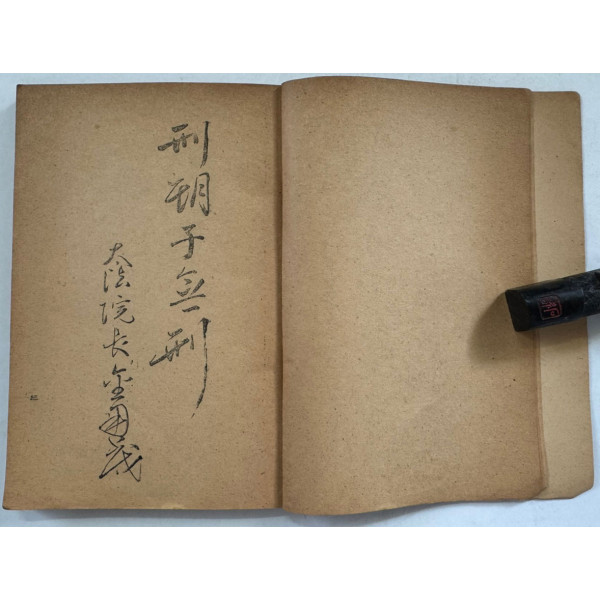 刑期于無刑
大法院長 金用茂